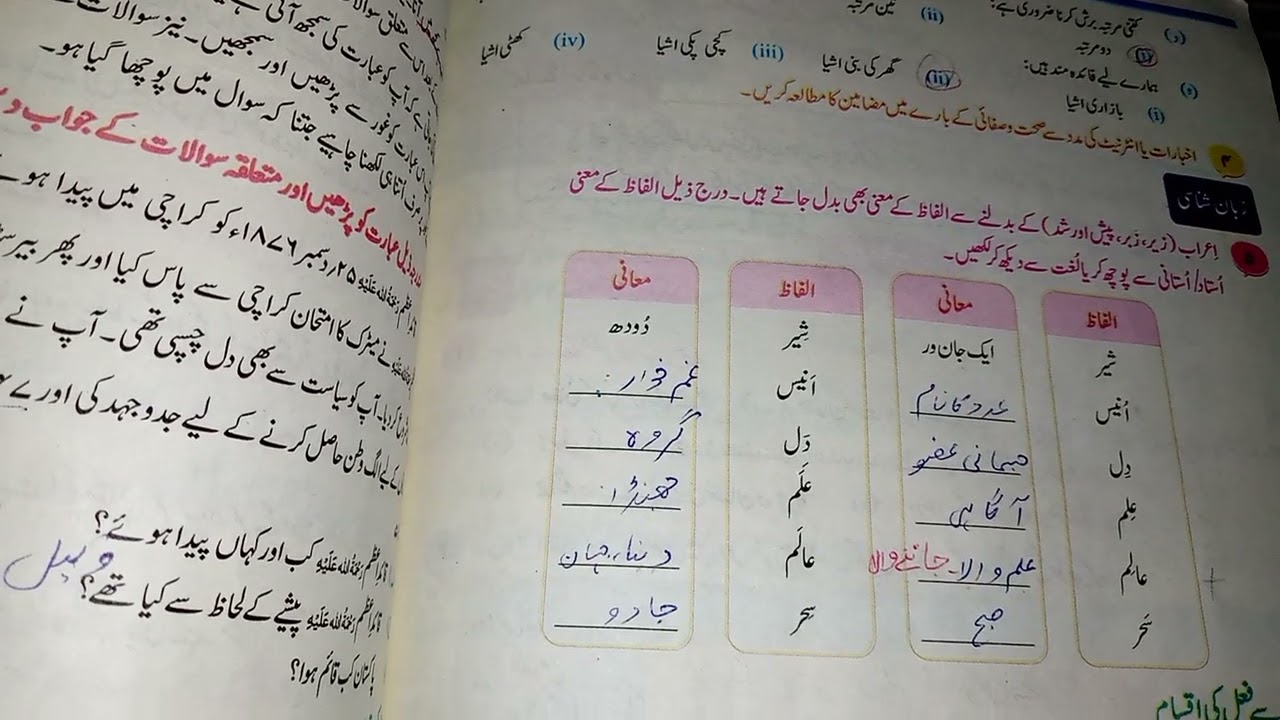 (د) کتنی مرتبہ برش کرنا ضروری ہے:
دو مرتبہ (ii) تین مرتبہ
(ہ) ہمارے لیے فائدہ مند ہیں:
(i) بازاری اشیا (ii) گھر کی بنی اشیا (iii) کچی پکی اشیا (iv) کھٹی اشیا
۴ اخبارات یا انٹرنیٹ کی مدد سے صحت و صفائی کے بارے میں مضامین کا مطالعہ کریں۔
زبان شناسی
اِعراب (زیر، زَبر، پیش اور شد) کے بدلنے سے الفاظ کے معنی بھی بدل جاتے ہیں۔ درج ذیل الفاظ کے معنی
اُستاد/اُستانی سے پوچھ کر یا لُغت سے دیکھ کر لکھیں۔
الفاظ معانی الفاظ معانی
شیر ایک جان ور شِیر دُودھ
اُنیس عدد کا نام اَنیس غم خوار
دِل جسمانی عضو دَل گروہ
عِلم آگاہی عَلَم جھنڈا
عالِم علم والا۔ جاننے والا عالَم دنیا، جہان
سَحَر صبح سِحر جادو
سے فعل کی اقسام
کی سمجھ آئی ہے
آپ کو عبارت کی سمجھ
عبارت کو غور سے پڑھیں اور سمجھیں۔ نیز سوالات کے
اتنا ہی لکھنا چاہیے جتنا کہ سوال میں پوچھا گیا ہو۔
عبارت کو پڑھیں اور متعلقہ سوالات کے جواب
رَحْمَۃُ اللہ عَلَیْہِ ۲۵؍ دسمبر ۱۸۷۶ء کو کراچی میں پیدا ہوئے
نے میٹرک کا امتحان کراچی سے پاس کیا اور پھر
آپ کو سیاست سے بھی دل چسپی تھی۔ آپ نے
کے لیے الگ وطن حاصل کرنے کے لیے جدوجہد کی اور
قائداعظم رَحْمَۃُ اللہ عَلَیْہِ کب اور کہاں پیدا ہوئے؟
قائداعظم رَحْمَۃُ اللہ عَلَیْہِ پیشے کے لحاظ سے کیا تھے؟ وکیل
پاکستان کب قائم ہوا؟